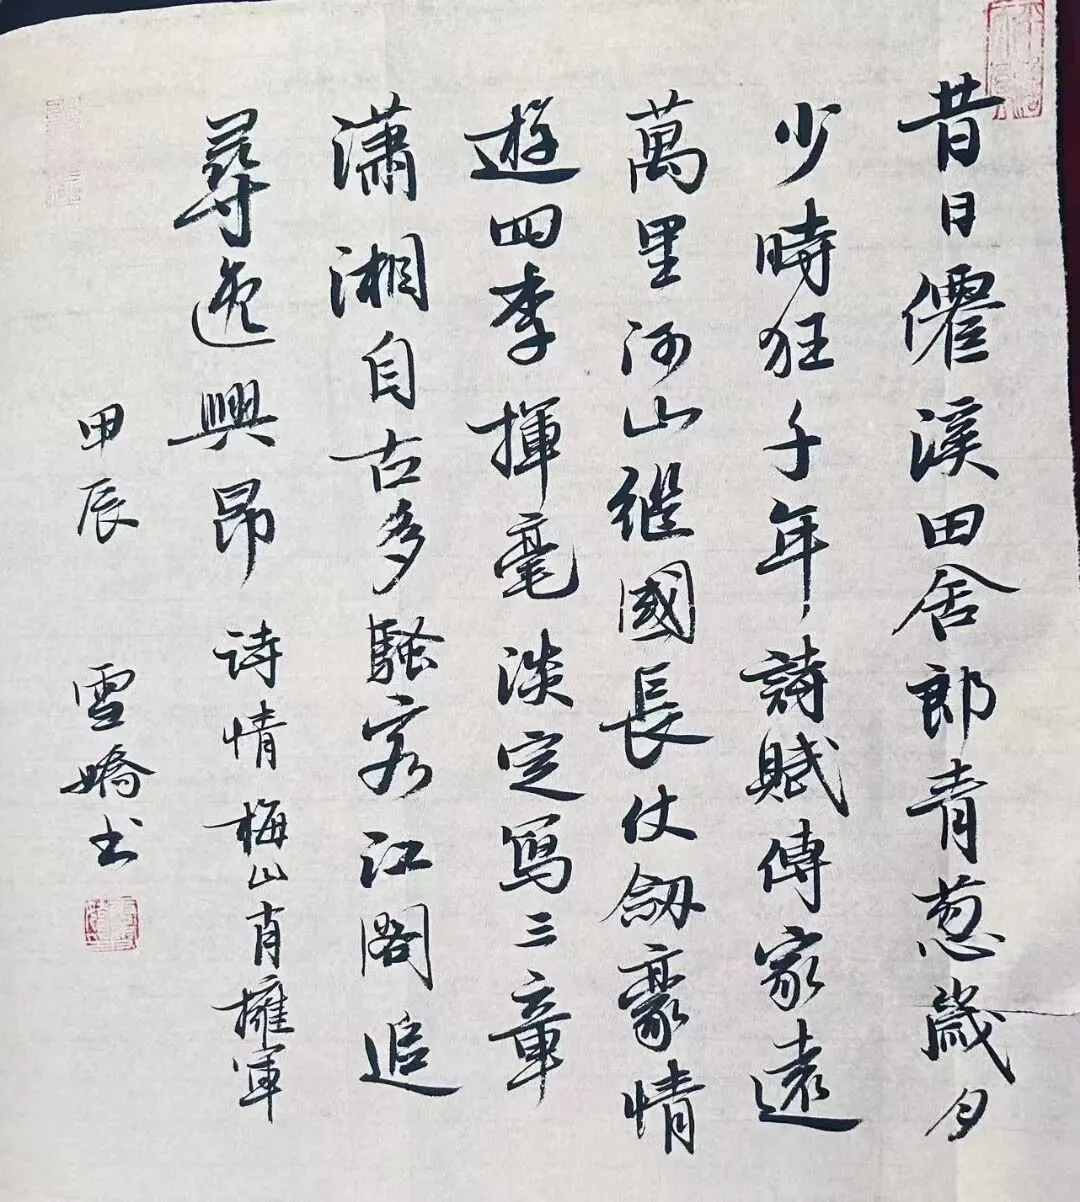 昔日儸溪田舍郎青葱歲月
少時狂千年詩賦傳家遠
萬里河山繼國長仗劒豪情
遊四季揮毫淡定寫三章
瀟湘自古多騷客江閣追
尋逸興昂 诗情梅山肖擁軍
甲辰 雪嬌书